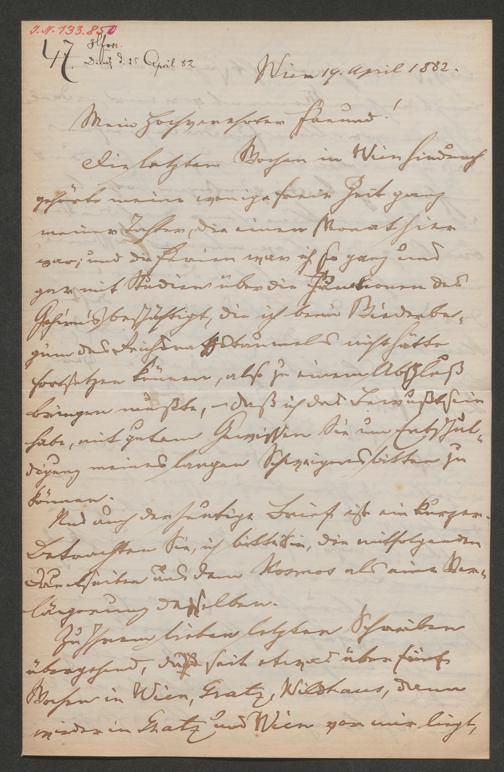 I.N. 133.850
47.
April 82
Wien 19. April 1882.
Mein hochverehrter Freund!
Die letzten Wochen in Wien hindurch
gehörte meine wenige freie Zeit ganz
meiner Tochter, die einen Monat hier
war; und die Ferien war ich so ganz und
gar mit Studien über die Functionen des
Gehirns beschäftigt, die ich beim Wiederbe-
ginn des nicht hätte
fortsetzen können, also zu einem Abschluß
bringen mußte, – daß ich das Bewußtsein
habe, mit gutem Gewissen Sie um Entschul-
digung meines langen Schweigens bitten zu
können.
Und auch der heutige Brief ist ein kurzer.
Betrachten Sie, ich bitte Sie, die mitfolgenden
Druckseiten aus dem Kosmos als eine Ver-
längerung desselben.
Zu Ihrem lieben letzten Schreiben
übergehend, das seit etwas über fünf
Wochen in Wien, Gratz, Wildhaus, dann
wieder in Gratz und Wien vor mir liegt,